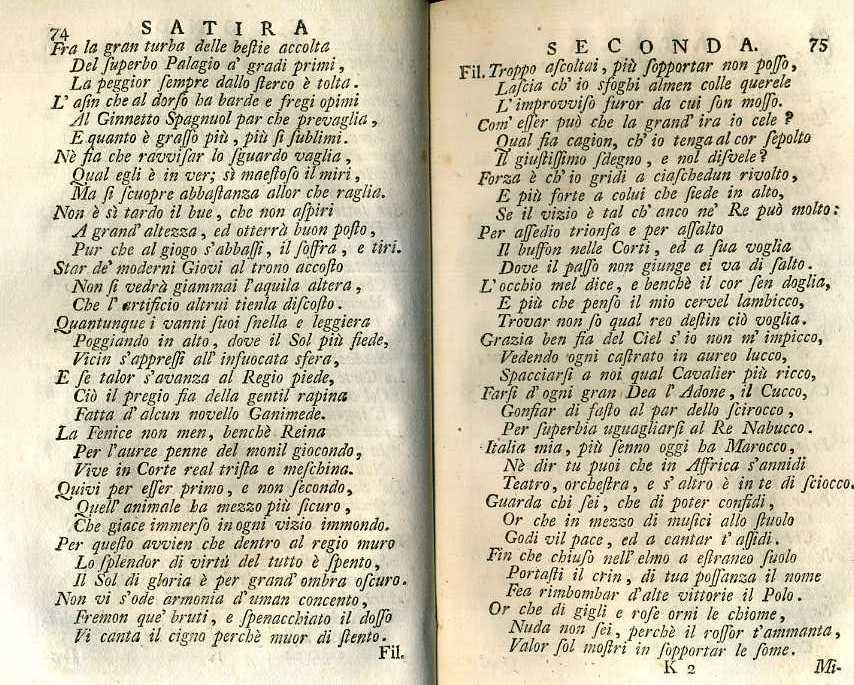 74 SATIRA
Fra la gran turba delle beſtie accolta
Del ſuperbo Palagio a' gradi primi,
La peggior ſempre dallo ſterco è tolta.
L' aſin che al dorſo ha barde e fregi opimi
Al Ginnetto Spagnuol par che prevaglia,
E quanto è graſſo più, più ſi ſublimi.
Nè fia che ravviſar lo ſguardo vaglia,
Qual egli è in ver; sì maeſtoſo il miri,
Ma ſi ſcuopre abbaſtanza allor che raglia.
Non è sì tardo il bue, che non aſpiri
A grand' altezza, ed otterrà buon poſto,
Pur che al giogo s'abbaſſi, il ſoffra, e tiri.
Star de' moderni Giovi al trono accoſto
Non ſi vedrà giammai l'aquila altera,
Che l' artificio altrui tienla diſcoſto.
Quantunque i vanni ſuoi ſnella e leggiera
Poggiando in alto, dove il Sol più fiede,
Vicin s'appreſſi all' infuocata sfera,
E ſe talor s'avanza al Regio piede,
Ciò il pregio fia della gentil rapina
Fatta d'alcun novello Ganimede.
La Fenice non men, benchè Reina
Per l'auree penne del monil giocondo,
Vive in Corte real triſta e meſchina.
Quivi per eſſer primo, e non ſecondo,
Quell' animale ha mezzo più ſicuro,
Che giace immerſo in ogni vizio immondo.
Per queſto avvien che dentro al regio muro
Lo ſplendor di virtù del tutto è ſpento,
Il Sol di gloria è per grand' ombra oſcuro.
Non vi s'ode armonia d'uman concento,
Fremon que' bruti, e ſpenacchiato il doſſo
Vi canta il cigno perchè muor di ſtento.
Fil.
SECONDA. 75
Fil. Troppo aſcoltai, più ſopportar non poſſo,
Laſcia ch' io sfoghi almen colle querele
L' improvviſo furor da cui ſon moſſo.
Com' eſſer può che la grand' ira io cele?
Qual fia cagion, ch' io tenga al cor ſepolto
Il giuſtiſſimo ſdegno, e nol diſvele?
Forza è ch' io gridi a ciaſchedun rivolto,
E più forte a colui che ſiede in alto,
Se il vizio è tal ch' anco ne' Re può molto:
Per aſſedio trionfa e per aſſalto
Il buffon nelle Corti, ed a ſua voglia
Dove il paſſo non giunge ei va di ſalto.
L' occhio mel dice, e benchè il cor ſen doglia,
E più che penſo il mio cervel lambicco,
Trovar non ſo qual reo deſtin ciò voglia.
Grazia ben fia del Ciel s' io non m' impicco,
Vedendo ogni caſtrato in aureo lucco,
Spacciarſi a noi qual Cavalier più ricco,
Farſi d' ogni gran Dea l' Adone, il Cucco,
Gonfiar di faſto al par dello ſcirocco,
Per ſuperbia uguagliarſi al Re Nabucco.
Italia mia, più ſenno oggi ha Marocco,
Nè dir tu puoi che in Affrica s'annidi
Teatro, orcheſtra, e s' altro è in te di ſciocco.
Guarda chi ſei, che di poter confidi,
Or che in mezzo di muſici allo ſtuolo
Godi vil pace, ed a cantar t' aſſidi.
Fin che chiuſo nell' elmo a eſtraneo ſuolo
Portaſti il crin, di tua poſſanza il nome
Fea rimbombar d'alte vittorie il Polo.
Or che di gigli e roſe orni le chiome,
Nuda non ſei, perchè il roſſor t'ammanta,
Valor ſol moſtri in ſopportar le ſome.
K 2 Mi-